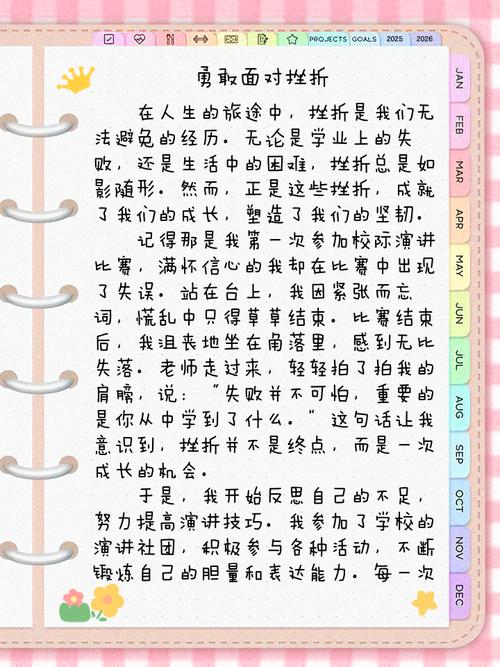 PROJECTS GOALS 2025 2026
勇敢面对挫折
在人生的旅途中，挫折是我们无
法避免的经历。无论是学业上的失
败，还是生活中的困难，挫折总是如
影随形。然而，正是这些挫折，成就
了我们的成长，塑造了我们的坚韧。
记得那是我第一次参加校际演讲
比赛，满怀信心的我却在比赛中出现
了失误。站在台上，我因紧张而忘
词，慌乱中只得草草结束。比赛结束
后，我沮丧地坐在角落里，感到无比
失落。老师走过来，轻轻拍了拍我的
肩膀，说：“失败并不可怕，重要的
是你从中学到了什么。”这句话让我
意识到，挫折并不是终点，而是一次
成长的机会。
于是，我开始反思自己的不足，
努力提高演讲技巧。我参加了学校的
演讲社团，积极参与各种活动，不断
锻炼自己的胆量和表达能力。每一次
JAN
FEB
MAR
APR
MAY
JUN
JUL
AUG
SEP
OCT
NOV
DEC